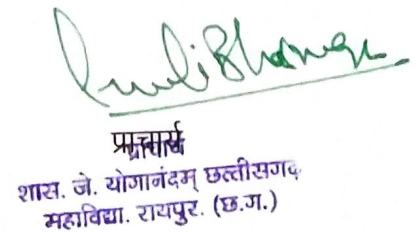 प्राचार्य
शास. जे. योगानंदम् छत्तीसगढ़
महाविद्या. रायपुर. (छ.ग.)